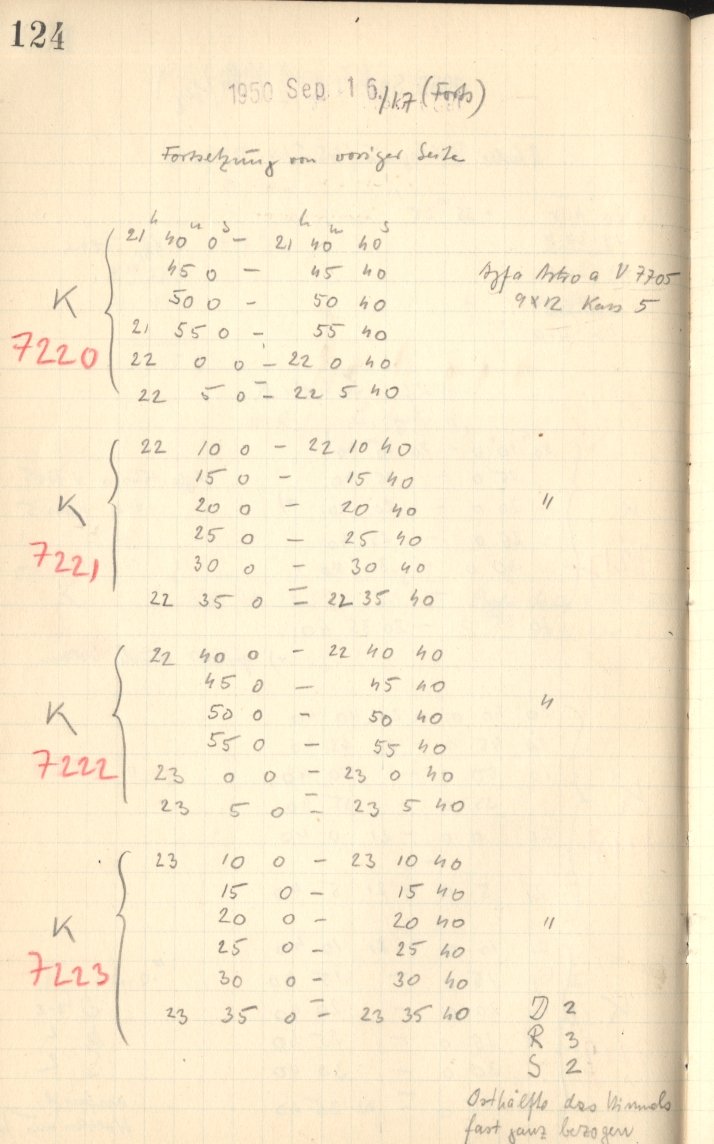 124
1950 Sep. 16./17 (Forts)
Fortsetzung von voriger Seite
21h 40m 0s - 21h 40m 40s
45 0 - 45 40
Agfa Astro a V 7705
50 0 - 50 40
9x12 Kass 5
K
21 55 0 - 55 40
7220
22 0 0 - 22 0 40
22 5 0 - 22 5 40
22 10 0 - 22 10 40
15 0 - 15 40
K
20 0 - 20 40 "
25 0 - 25 40
7221
30 0 - 30 40
22 35 0 - 22 35 40
22 40 0 - 22 40 40
45 0 - 45 40 "
K
50 0 - 50 40
55 0 - 55 40
7222
23 0 0 - 23 0 40
23 5 0 - 23 5 40
23 10 0 - 23 10 40
15 0 - 15 40
K
20 0 - 20 40 "
25 0 - 25 40
7223
30 0 - 30 40
23 35 0 - 23 35 40
D 2
R 3
S 2
Osthälfte des Himmels
fast ganz bezogen